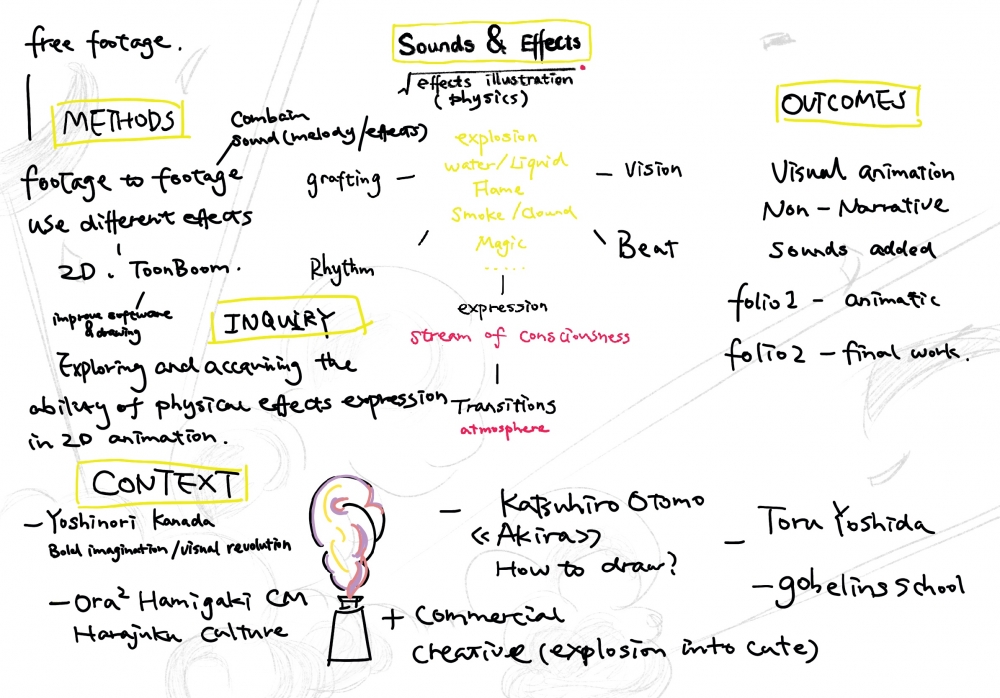 free footage.
METHODS
Combain
sound (melody/effects)
footage to footage
use different effects
2D. ToonBoom.
improve software
& drawing
Sounds & Effects
√ effects illustration
(physics)
explosion
water/Liquid
Flame
Smoke/Clound
Magic
.....
grafting
Rhythm
Vision
Beat
expression
stream of consciousness
Transitions
atmosphere
OUTCOMES
Visual animation
Non-Narrative
Sounds added
folio 1 - animatic
folio 2 - final work.
INQUIRY
Exploring and accquining the
ability of physical effects expression
in 2D animation.
CONTEXT
- Yoshinori Kanada
Bold imagination/visual revolution
- Ora² Hamigaki CM
Harajuku culture
- Katsuhiro OTOMO
《Akira》
How to draw?
+ Commercial
Creative (explosion into cute)
- Toru Yoshida
- gobelins school